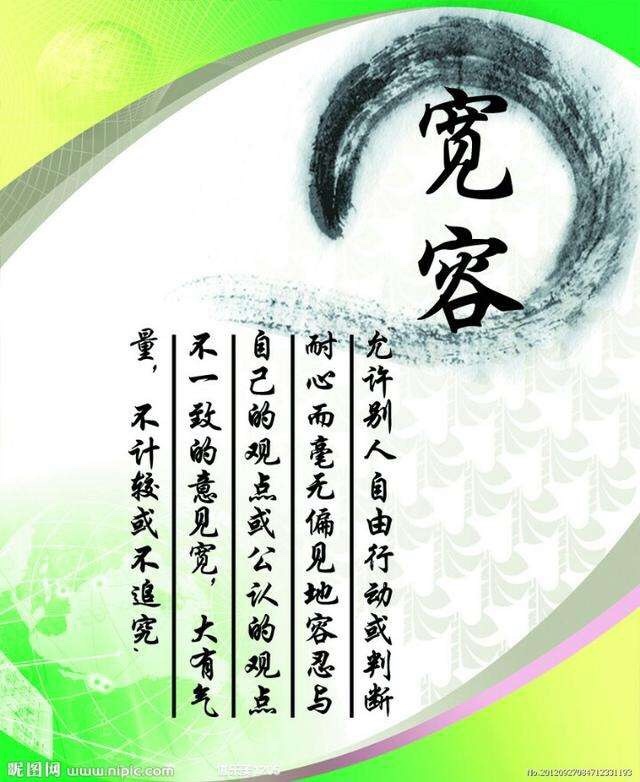 宽容
允许别人自由行动或判断
耐心而毫无偏见地容忍与
自己的观点或公认的观点
不一致的意见宽,大有气
量,不计较或不追究.
昵图网 www.nipic.com
No.20120927084712331193